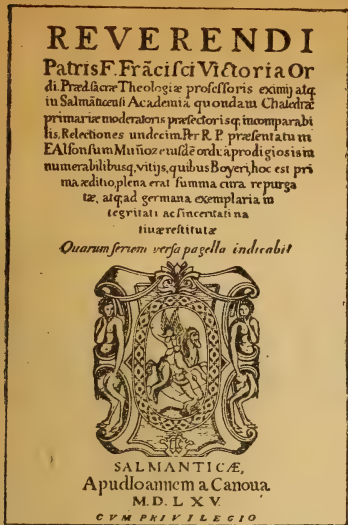 REVERENDI
Patris F. Frãcisci Victoria Or
di. Præd. sacræ Theologiæ professoris eximij atq;
in Salmãticensi Academia quondam Chatedræ
primariæ moderatoris præfectorisq; incomparabi
lis, Relectiones undecim. Per R. P. præsentatum
F. Alfonsum Muñoz eiusdẽ ordi. a prodigiosis in
numerabilibusq; vitijs, quibus Boyeri, hoc est pri
ma æditio, plena erat summa cura repurga
tæ, atq; ad germana exemplaria in
tegritati ac sinceritati na
tiuæ restitutæ
Quarum seriem versa pagella indicabit
SALMANTICÆ,
Apud Ioannem a Canoua
M.D.LXV.
CVM PRIVILEGIO